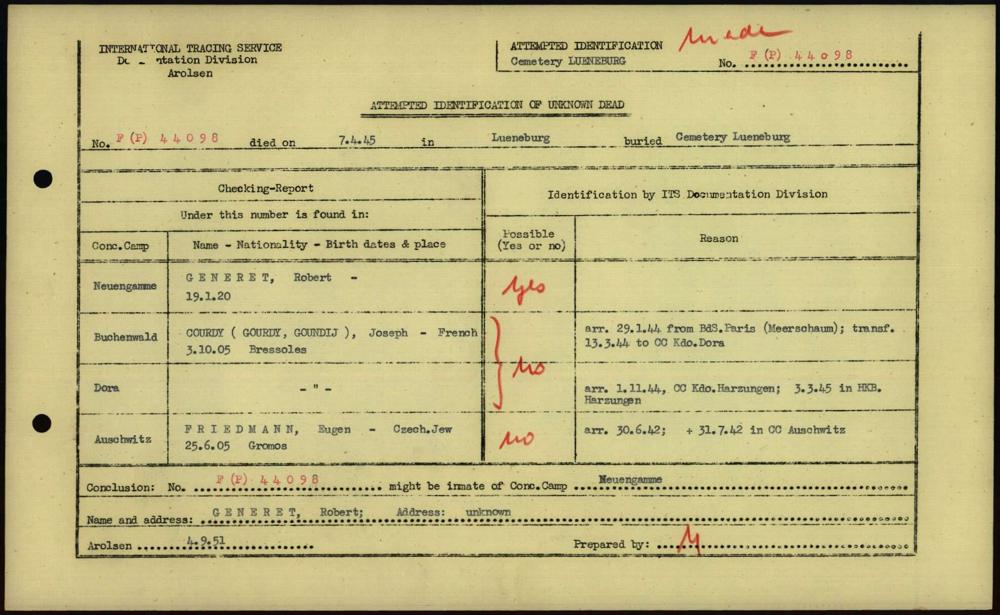 INTERNATIONAL TRACING SERVICE
Documentation Division
Arolsen
ATTEMPTED IDENTIFICATION
Cemetery LUENEBURG
No. F (P) 4 4 0 9 8
ATTEMPTED IDENTIFICATION OF UNKNOWN DEAD
No. F (P) 4 4 0 9 8 died on 7.4.45 in Lueneburg buried Cemetery Lueneburg
Checking-Report
Identification by ITS Documentation Division
Under this number is found in:
Conc.Camp
Name - Nationality - Birth dates & place
Possible
(Yes or no)
Reason
Neuengamme
G E N E R E T, Robert -
19.1.20
Yes
Buchenwald
COURDY ( GOURDY, GOUNDIJ ), Joseph - French
3.10.05 Bressoles
no
arr. 29.1.44 from BdS.Paris (Meerschaum); transf.
13.3.44 to CC Kdo.Dora
Dora
- " -
arr. 1.11.44, CC Kdo.Harzungen; 3.3.45 in HKB.
Harzungen
Auschwitz
F R I E D M A N N, Eugen - Czech.Jew
25.6.05 Gromos
no
arr. 30.6.42; + 31.7.42 in CC Auschwitz
Conclusion: No. F (P) 4 4 0 9 8 might be inmate of Conc.Camp Neuengamme
Name and address: G E N E R E T, Robert; Address: unknown
Arolsen 4.9.51
Prepared by: